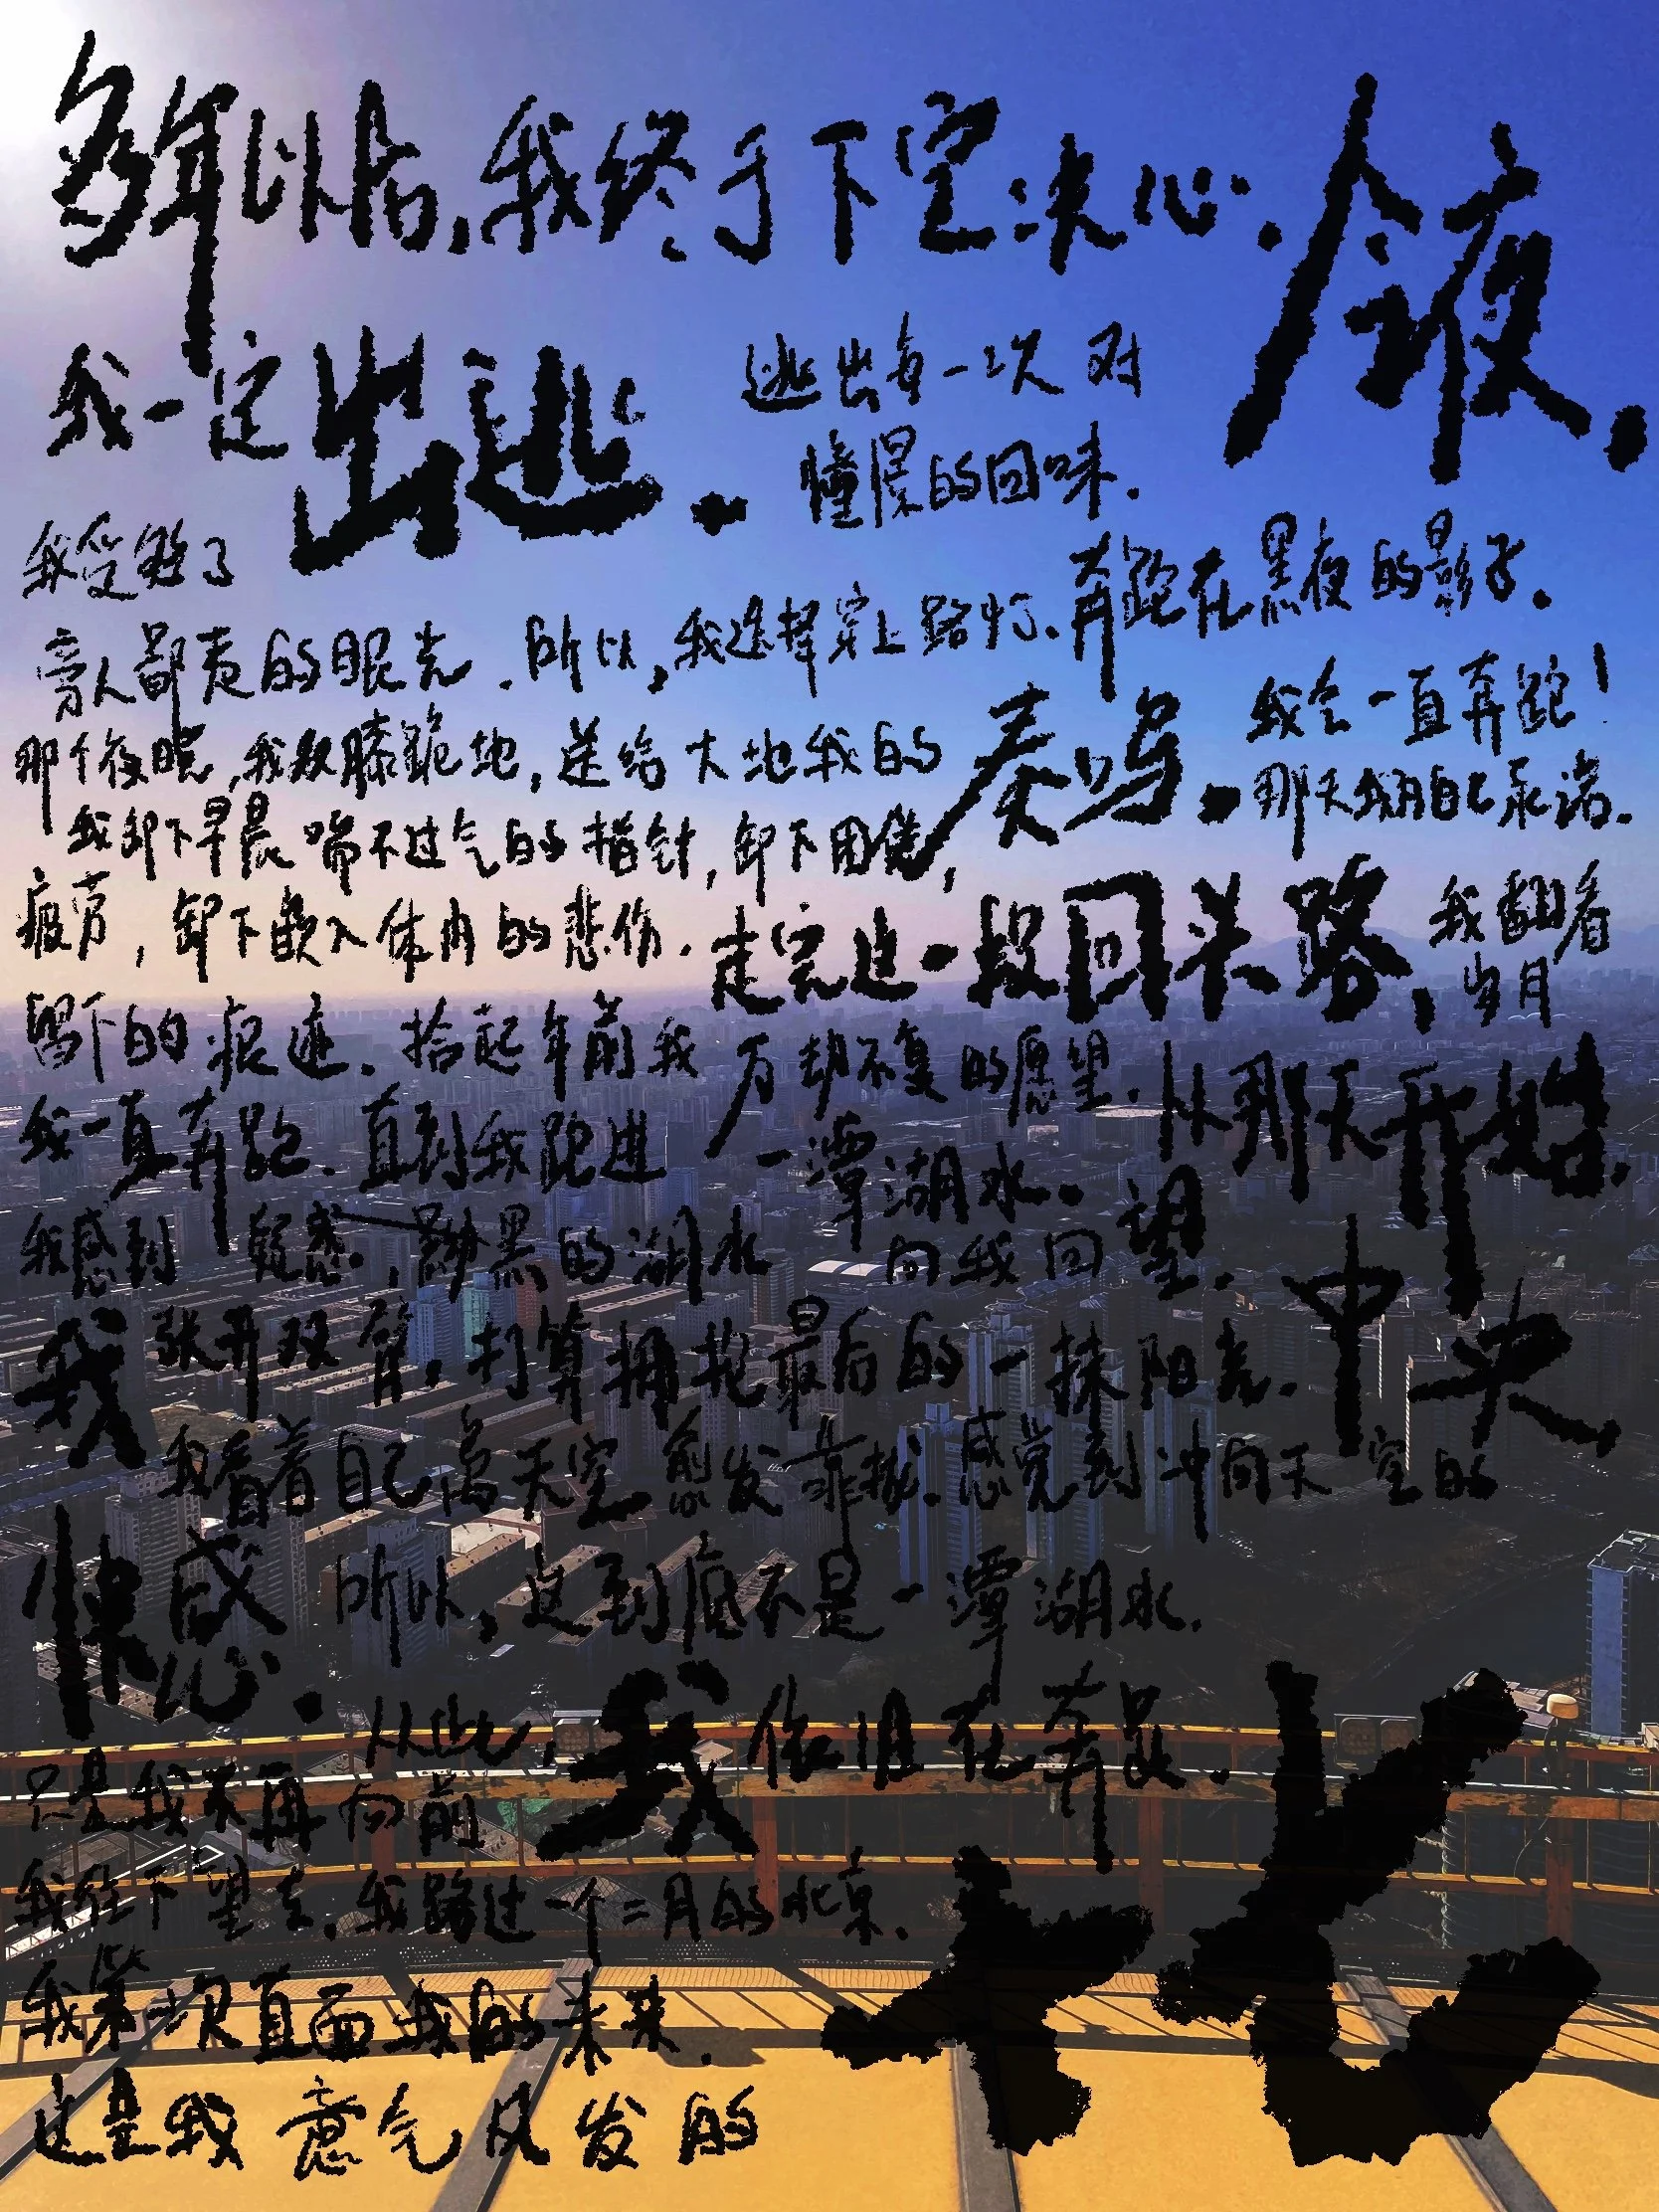 多年以后,我终于下定决心.今夜,
我一定出逃.逃出每一次对
憧憬的回味.
我受够了
旁人鄙夷的眼光.所以,我选择穿上路灯.奔跑在黑夜的影子.
那个夜晚,我双膝跪地,送给大地我的奏鸣.我会一直奔跑!
那天我用自己承诺.
我卸下早晨喘不过气的指针,卸下困倦,
疲劳,卸下嵌入体内的悲伤.走完这一段回头路,我翻看
岁月
留下的痕迹.拾起年前我万劫不复的愿望.从那天开始,
我一直奔跑.直到我跑进一潭湖水.
我感到疑惑.,黝黑的湖水向我回望.
我张开双臂.打算拥抱最后的一抹阳光.中央
我看着自己离天空愈发靠拢.感觉到冲向天空的
快感.所以,这到底不是一潭湖水.
从此,我依旧在奔跑.
只是我不再向前
我往下望去.我路过一个二月的北京.
我第一次直面我的未来.
这是我意气风发的
十七